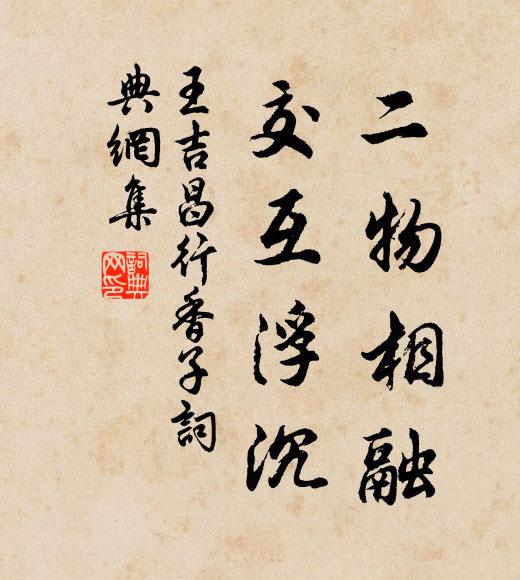 二物相融
交互浮沉
王吉昌行香子詞
典網集
詞典
网印